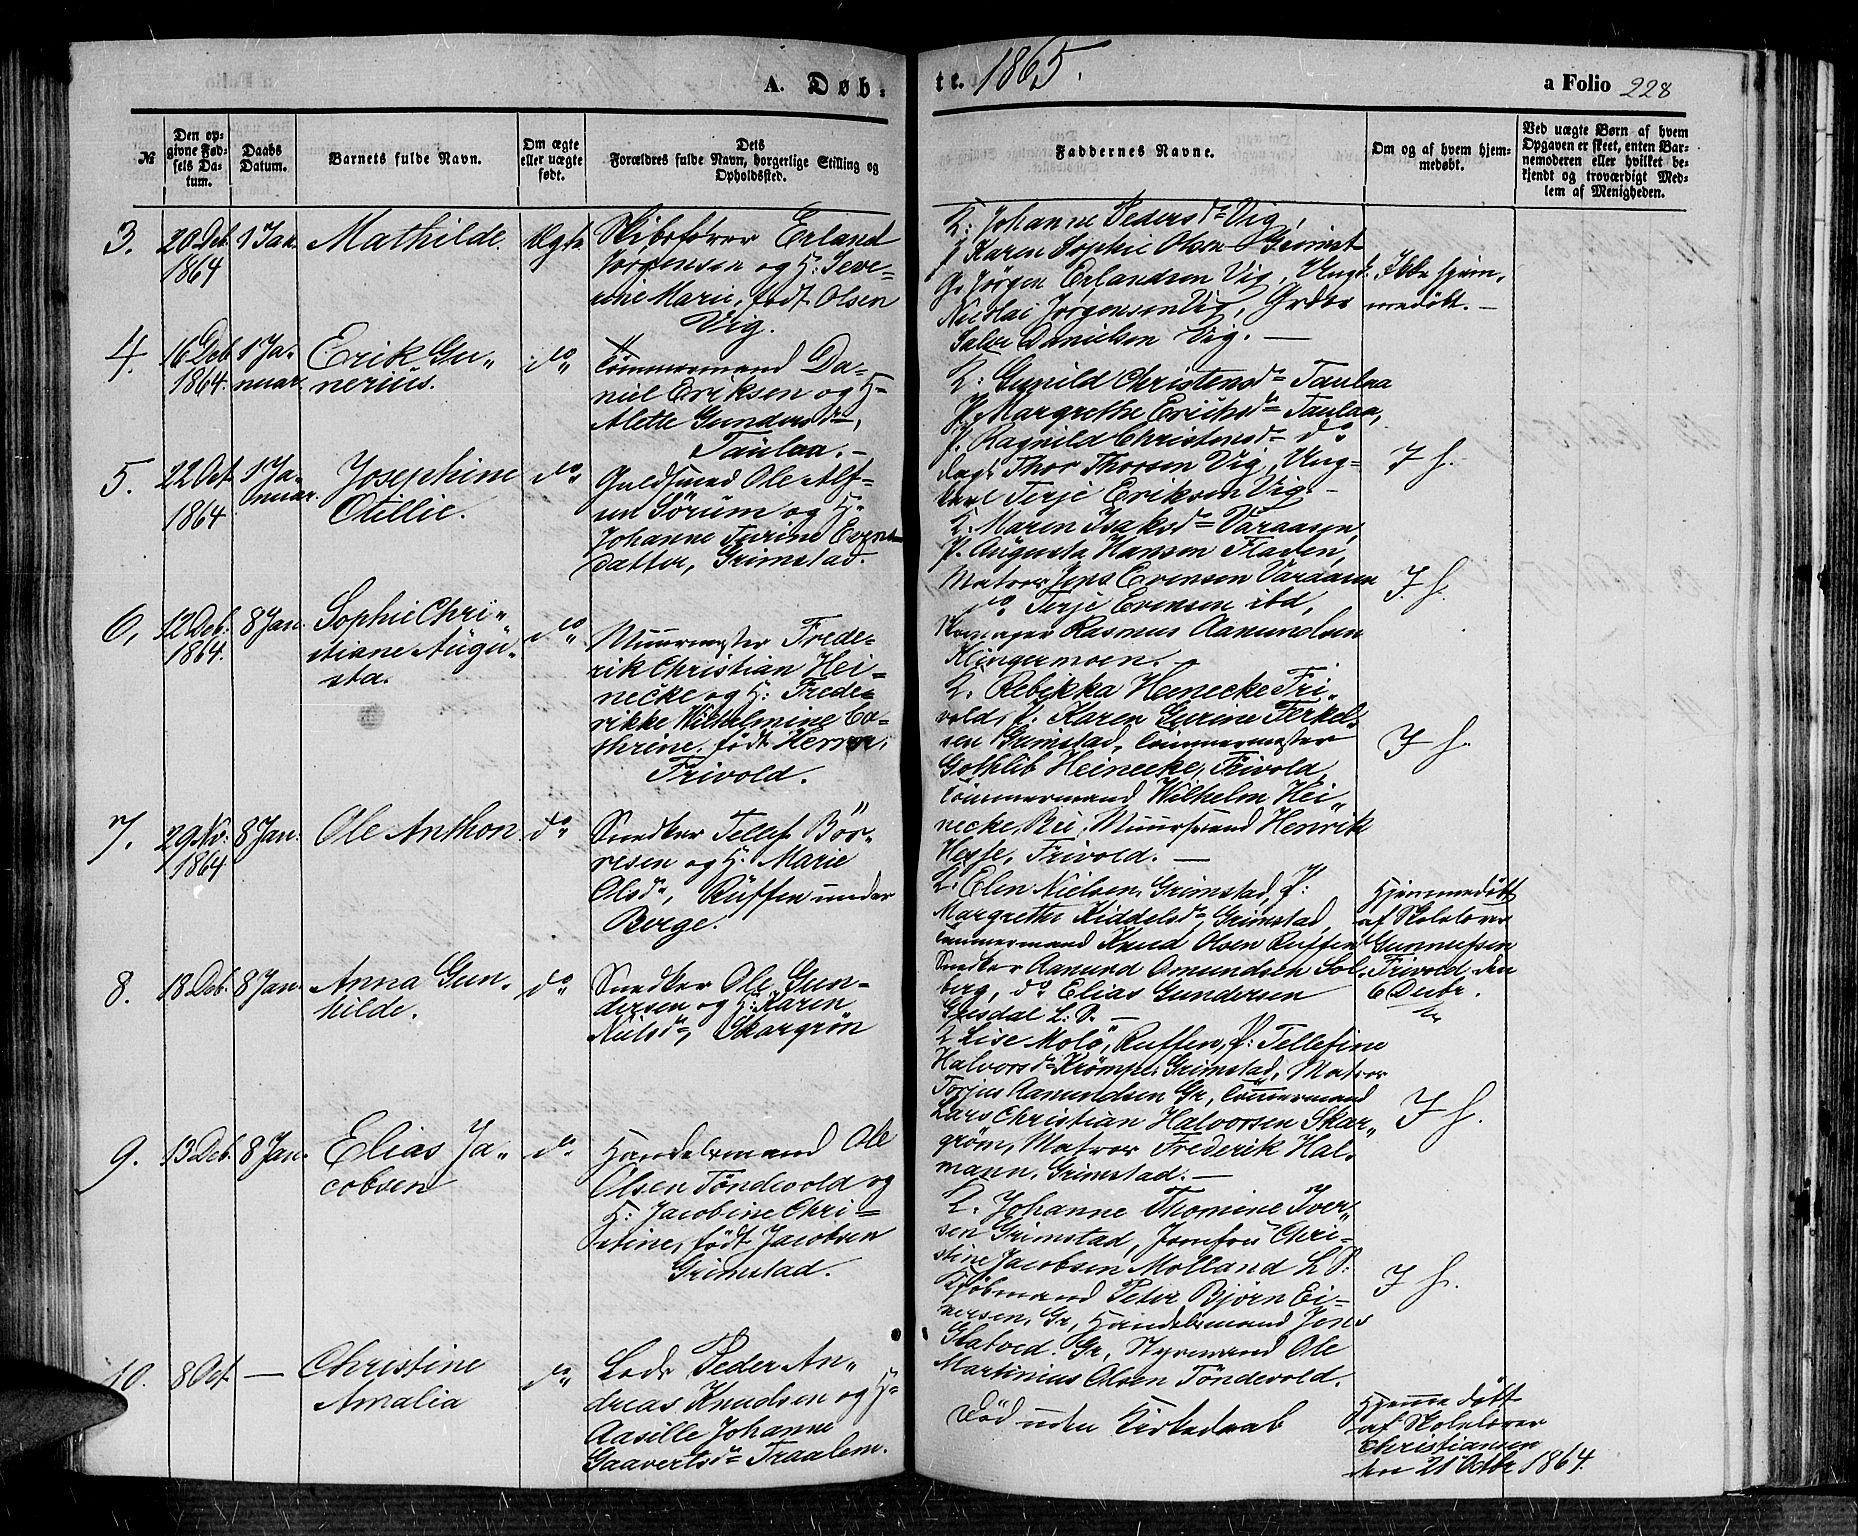 A. Døb.
te. 1865.
a Folio 228
№
Den op-
givne Fød-
sels Da-
tum.
Daabs
Datum.
Barnets fulde Navn.
Om ægte
eller uægte
født.
Dets
Forældres fulde Navn, borgerlige Stilling og
Opholdssted.
Faddernes Navne.
Om og af hvem hjem-
medøbt.
Ved uægte Børn af hvem
Opgaven er skeet, enten Bar-
nemoderen eller hvilket be-
kjendt og troværdigt Med-
lem af Menigheden.
3.
20 Deb
1864
1 Jan
Mathilde.
Ægte
Skibsfører Erland
Jørgensen og H: Seve-
rine Marie, født Olsen
Vig.
K: Johanne Pedersd= Vig,
P Karen Sophie Olsen Grimst
G. Jörgen Erlandsen Vig, Ungk.
Nicolai Jørgensen Vig, Grdbr
Salve Danielsen Vig. —
Ikke hjem-
medöbt. —
4.
16 Deb
1864.
1 Ja-
nuar.
Erik Gu-
nerius.
do
Tömmermand Da-
niel Eriksen og H=
Alette Gundersd=,
Taulaa. —
K: Gunild Christensd= Taulaa
P. Margrethe Eriksd= Taulaa,
P. Ragnild Christensd= do
Dags Thor Thorsen Vig, Ung-
karl Terje Eriksen Vig. —
I h.
5.
22 Oct
1864
1 Ja-
nuar.
Josephine
Otillie.
do
Guldsmed Ole Alf-
sen Sörum og H.
Johanne Turine Evens-
datter, Grimstad.
K. Maren Isaksd= Varaasen,
P. Augusta Hansen Fladen,
Matros Jens Evensen Varaasen
do Terje Evensen ibd,
Skomager Rasmus Aanundsen
Klingermoen. —
I. h.
6.
12 Deb.
1864.
8 Jan.
Sophie Chri-
stiane Augu-
sta.
do
Muurmester Frede-
rik Christian Hei-
necke og H: Frede-
rikke Wilhelmine Ca-
thrine, født Herron,
Frivold.
K. Rebekka Heinecke Fri-
vold, P. Karen Gurine Terkel-
sen Grimstad, Tömmermester
Gothlib Heinecke, Frivold,
Tömmermand Wilhelm Hei-
necke, Bie, Muursvend Henrik
Hesse, Frivold. —
I h.
7.
29 Nv:
1864
8 Jan:
Ole Anthon
do
Snedker Tellef Bör-
resen og H. Marie
Olsd=, Rüffen under
Berge.
K. Elen Nielsen, Grimstad, P:
Margrethe Kiddelsd= Grimstad,
Tömmermand Knud Olsen Ruffen
Snedker Aanund Omundsen Sol-
berg, do Elias Gundersen
Giesdal L: S. —
Hjemmedöbt
af Skolelærer
Gunnufsen
Frivold den
6 Decbr.
8.
18 Deb.
8 Jan.
Anna Gun-
hilde.
do
Snedker Ole Gun-
dersen og H: Karen
Nielsd=, Skargrøn
K Lise Molö, Ruffen, P: Tellefine
Halvorsd= Krömpe, Grimstad, Matros
Torjus Aanundsen Gr, Tömmermand
Lars Christian Halvorsen Skar-
grøm, Matros Frederik Hal-
mann, Grimstad. —
I h.
9.
13 Deb.
8 Jan.
Elias Ja-
cobsen
do
Handelsmand Ole
Olsen Töndevold og
H: Jacobine Chri-
stine, født Jacobsen
Grimstad.
K. Johanne Thomine Iver-
sen Grimstad, Jomfru Chri-
stine Jacobsen Molland L S:
Kjöbmand Peter Bjørn Ei-
nersen, Gr, Handelsmand Jens
Glatved. Gr, Styrmand Ole
Martinius Olsen Töndevold.
I h.
10.
8 Oct
—
Christine
Amalia
do
Lods Peder An-
dreas Knudsen og H=
Aasille Johanne
Gaavertsd= Traalem.
Död uden Kirkedaab
Hjemmedöbt
af Skolelærer
Christiansen
den 21 Octbr 1864.